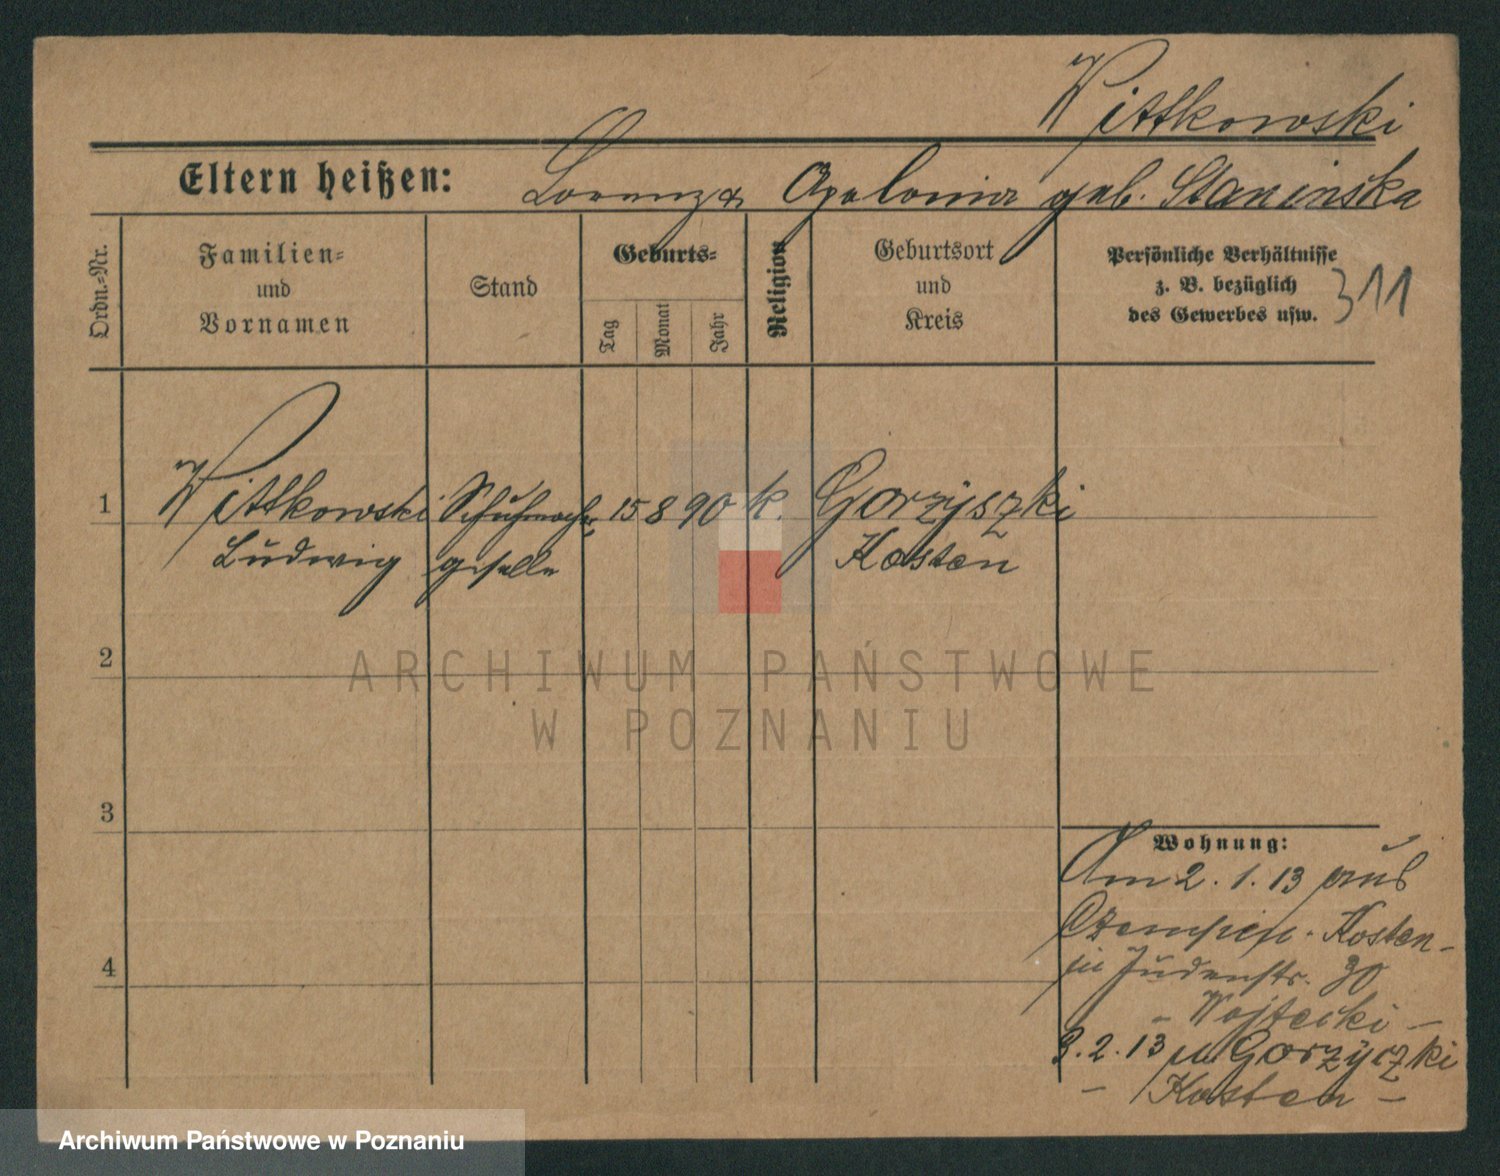 Wittkowski
Eltern heißen: Lorenz & Apolonia geb. Staninska
Ordn.=Nr.
Familien=
und
Vornamen
Stand
Geburts=
Tag
Monat
Jahr
Religion
Geburtsort
und
Kreis
Persönliche Verhältnisse
z. B. bezüglich
des Gewerbes usw.
311
1 Wittkowski Schuhmacher 15 8 90 k. Gorzyszki
Ludwig geselle Kosten
2
ARCHIWUM PAŃSTWOWE
W POZNANIU
3
4
Wohnung:
Am 2. 1. 13 aus
Czempin - Kosten -
in Judenstr. 30
- Wojtecki -
3. 2. 13 n. Gorzyczki
- Kosten -
Archiwum Państwowe w Poznaniu